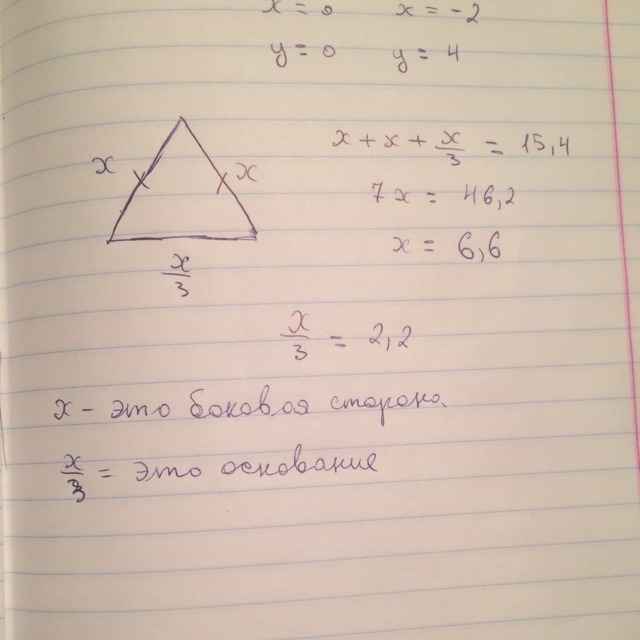 x = 0 x = -2
y = 0 y = 4
x + x + x/3 = 15,4
x x
7x = 46,2
x = 6,6
x/3
x/3 = 2,2
x - это боковая сторона
x/3 = это основание